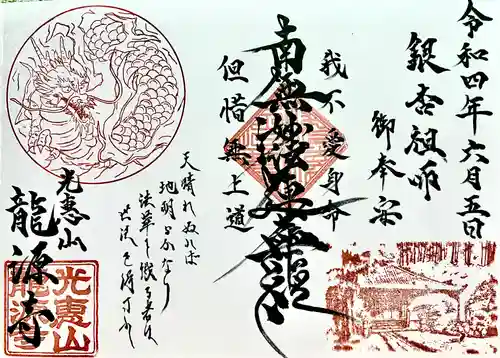 令和四年六月五日
銀杏祖師
御奉安
我不愛身命
南無妙法蓮華経
但惜無上道
天晴れぬれば
地明らかなり
法華を識る者は
世法を得可し
光恵山
龍源寺
光恵山
龍源寺